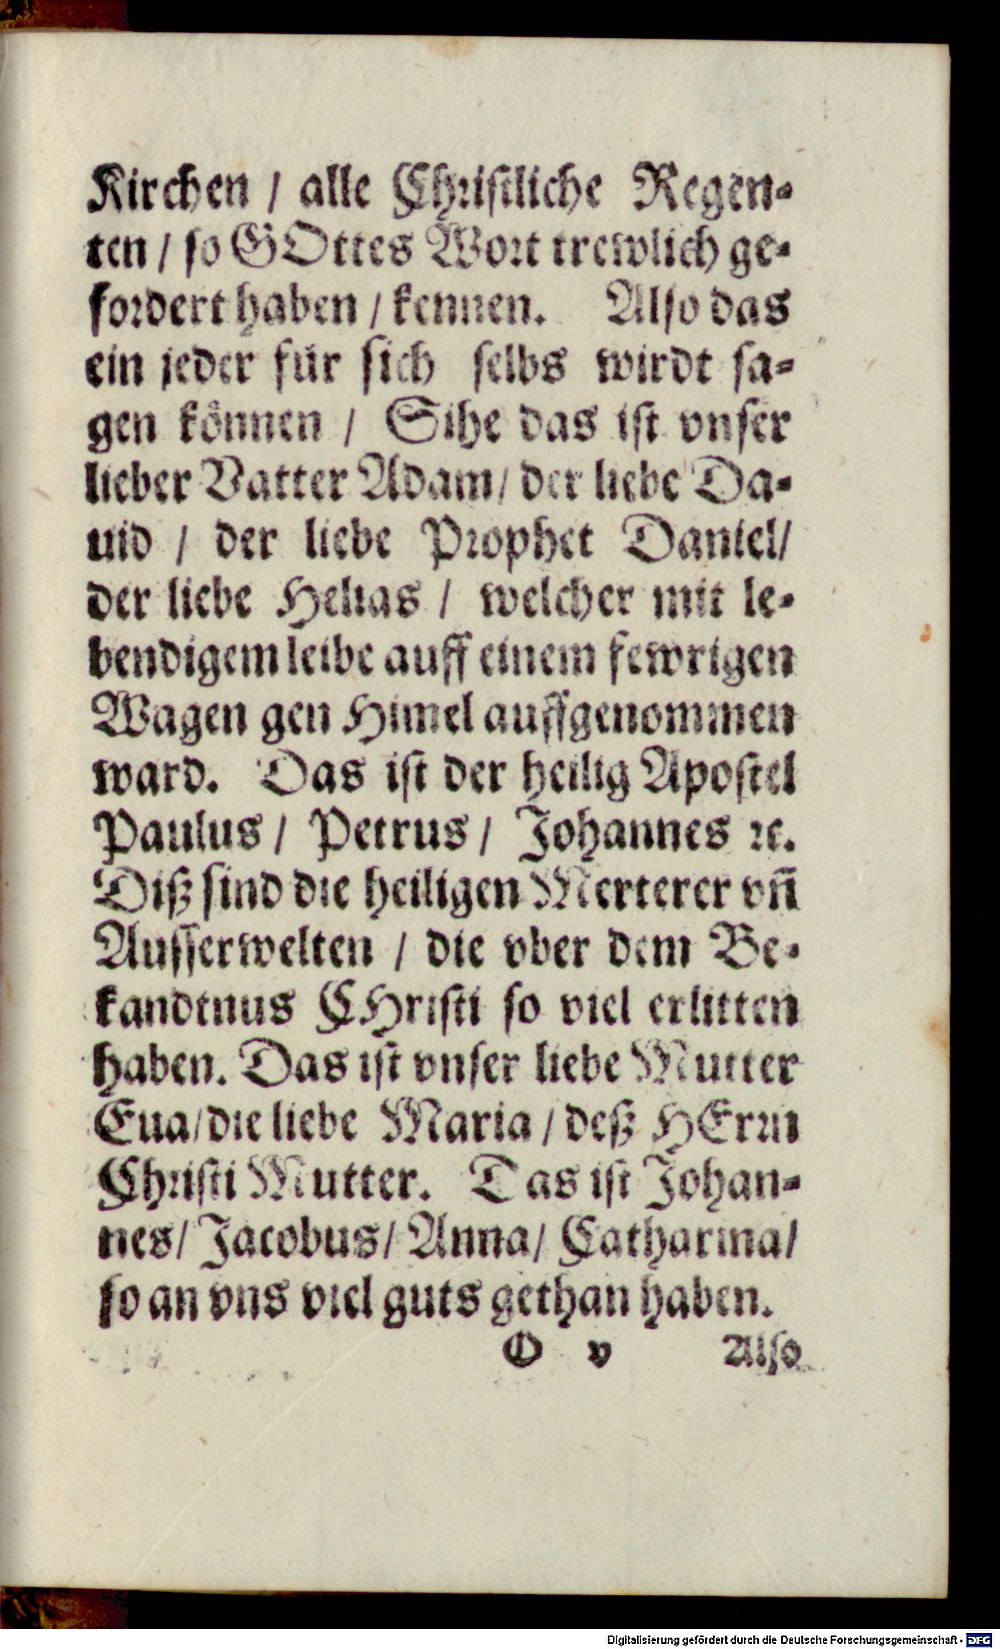 Kirchen / alle Christliche Regen-
ten / so GOttes Wort trewlich ge-
fordert haben / kennen. Also das
ein jeder für sich selbs wirdt sa-
gen können / Sihe das ist vnser
lieber Vatter Adam / der liebe Da-
uid / der liebe Prophet Daniel /
der liebe Helias / welcher mit le-
bendigem leibe auff einem fewrigen
Wagen gen Himel auffgenommen
ward. Das ist der heilig Apostel
Paulus / Petrus / Johannes ꝛc.
Diß sind die heiligen Merterer vñ
Ausserwelten / die vber dem Be-
kandtnus CHristi so viel erlitten
haben. Das ist vnser liebe Mutter
Eua / die liebe Maria / deß HErrn
Christi Mutter. Das ist Johan-
nes / Jacobus / Anna / Catharina /
so an vns viel guts gethan haben.
O v Also
Digitalisierung gefördert durch die Deutsche Forschungsgemeinschaft - DFG